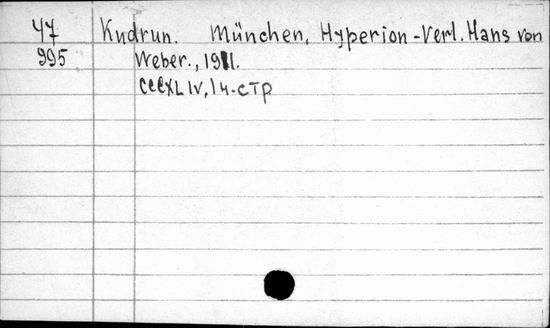 47 Kudrun. München, Hyperion-Verl. Hans von
995 Weber., 1911.
CCCXLIV, 14-стр